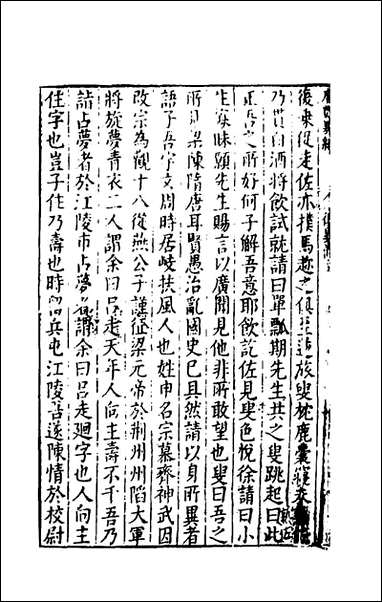 後東促走佐亦撲馬趂之俱至逆旅叟枕鹿囊寢未
乃貰白酒將飲試就請曰單瓢期先生共之叟跳起曰此
正吾之所好何子解吾意耶飲訖佐見叟色悅徐請曰小
生寡昧願先生賜言以廣聞見他非所敢望也叟曰吾之
所見梁陳隋唐耳賢愚治亂國史已具然請以身所異者
語子吾宇文周時居岐扶風人也姓申名宗慕齊神武因
改宗為觀十八從燕公子謹征梁元帝於荊州州陷大軍
將旋夢青衣二人謂余曰呂走天年人向主壽不千吾乃
詣占夢者於江陵市占夢者謂余曰呂走廻字也人向主
住字也豈子住乃壽也時留兵屯江陵吾遂陳情於校尉